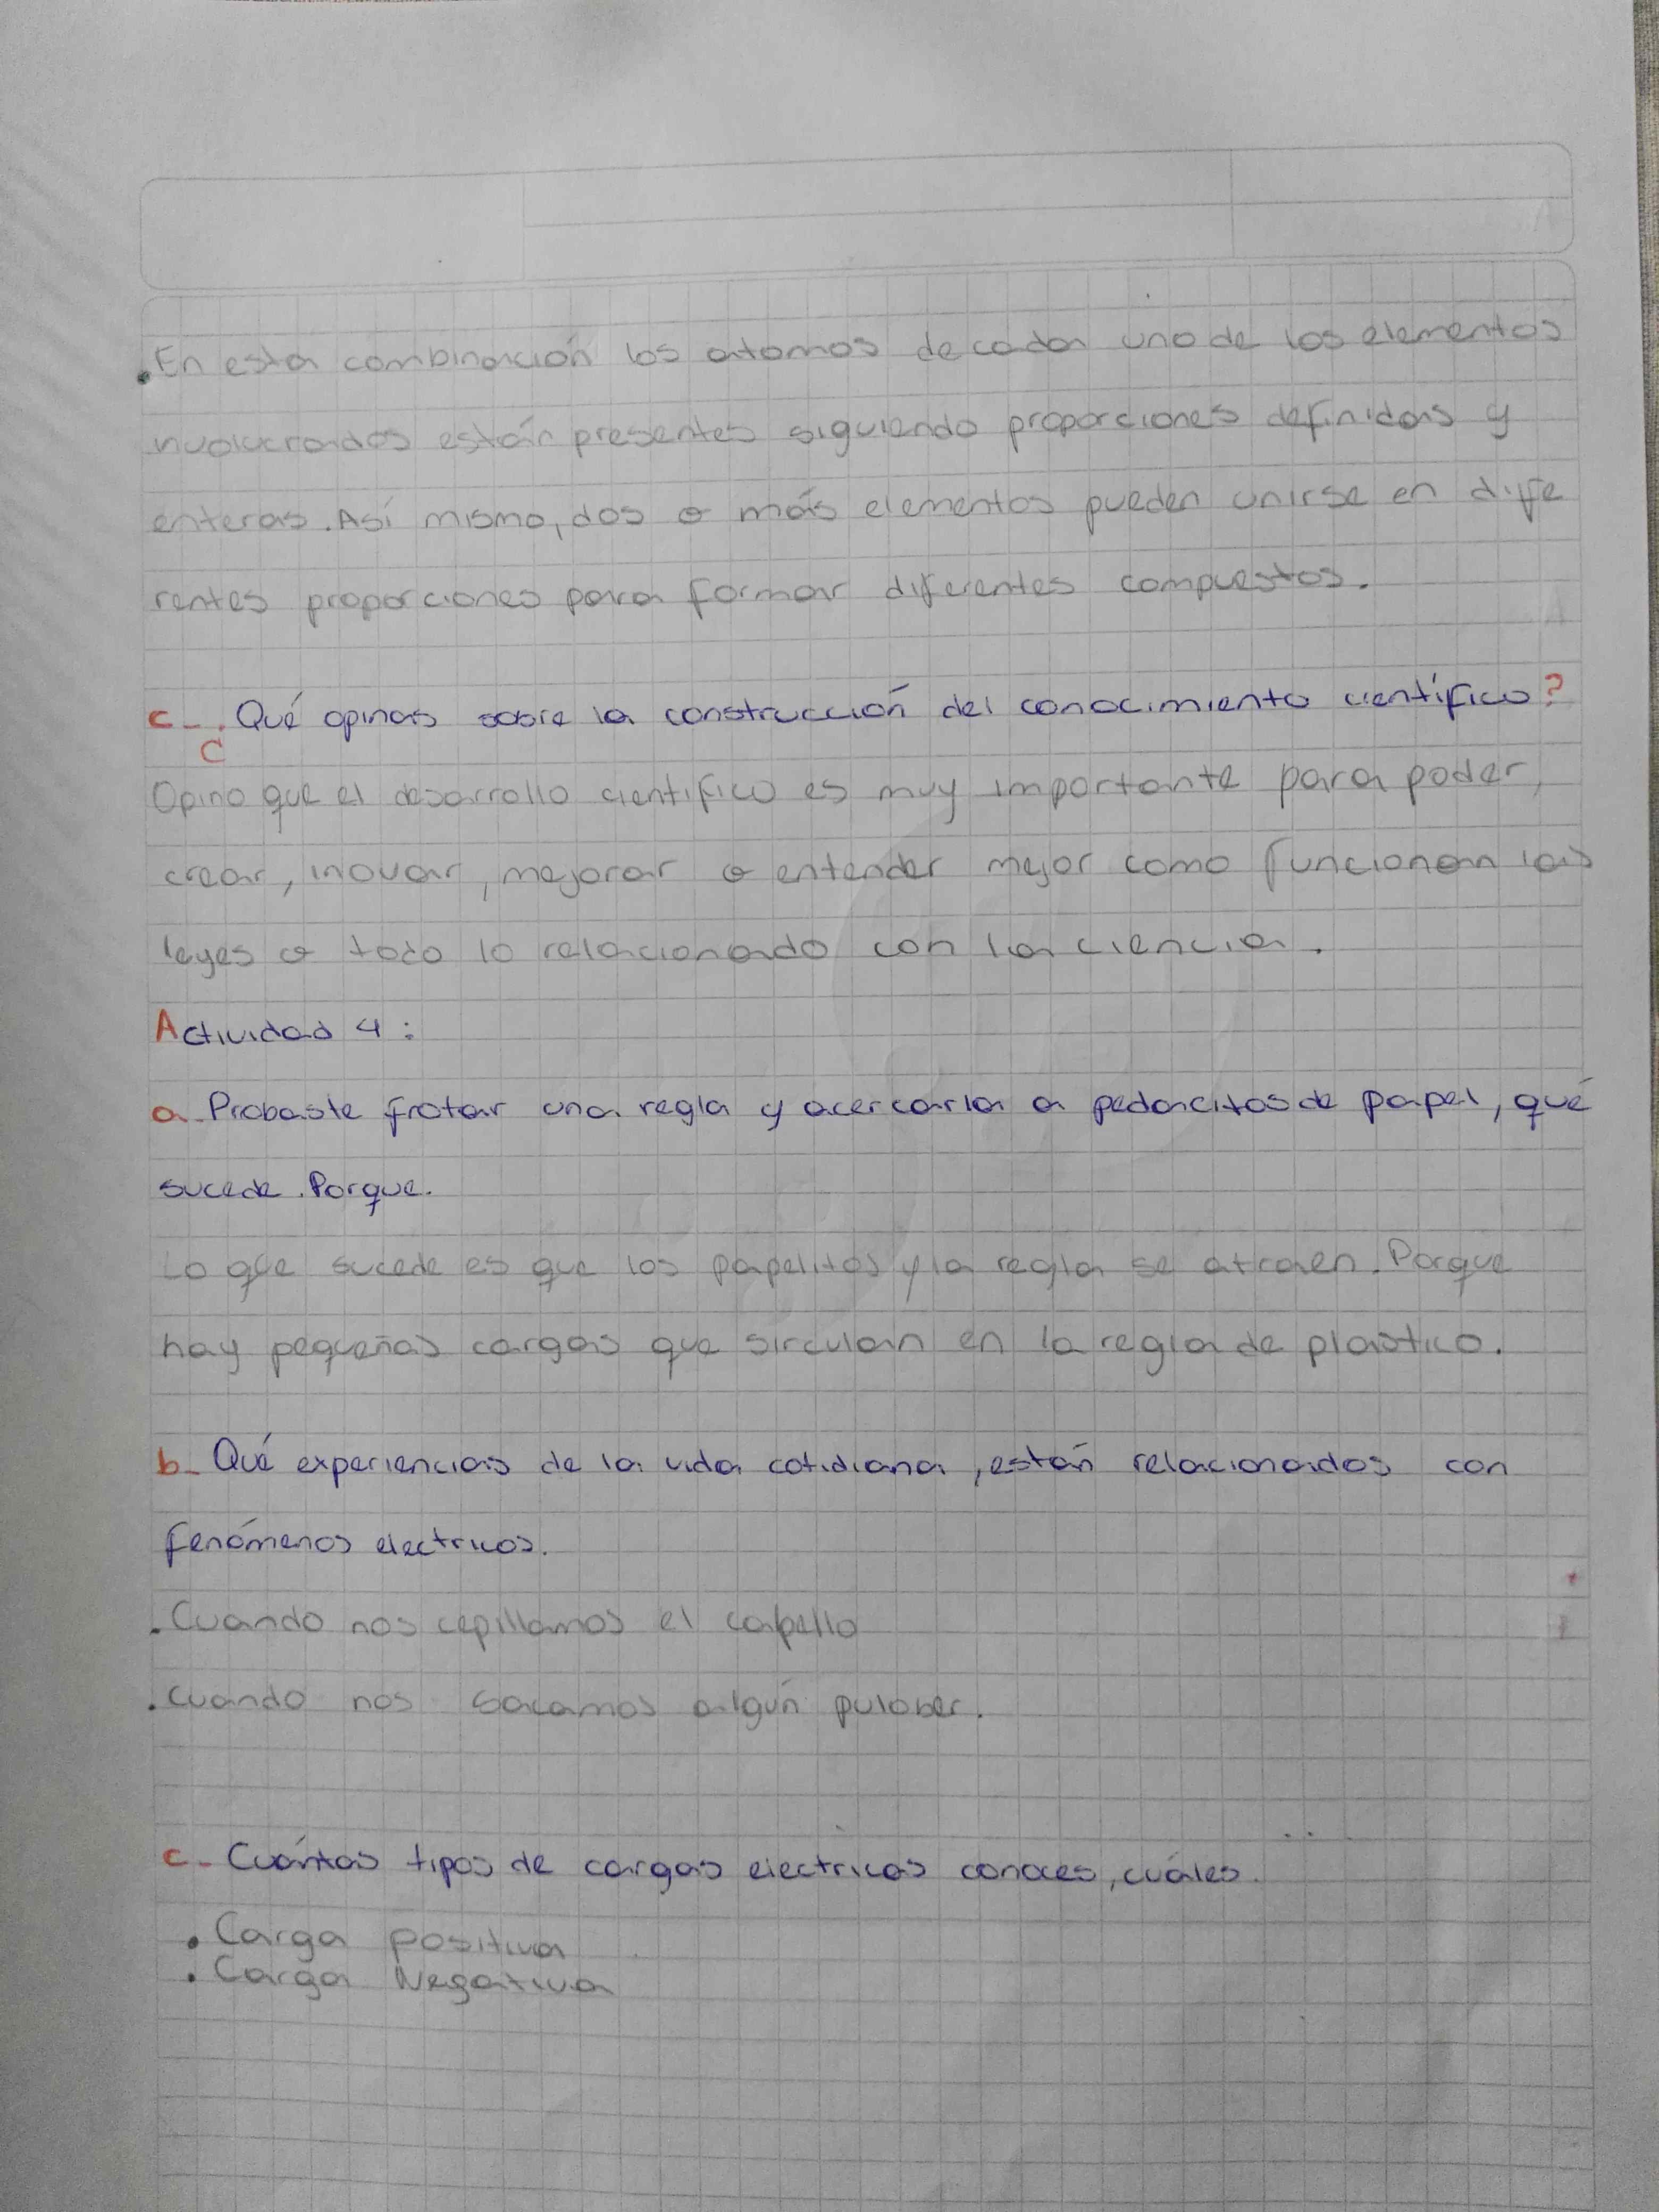 . En esta combinación los atomos de cada uno de los elementos
nvolucrados están presentes siguiendo proporciones definidas y
enteras. Así mismo, dos o más elementos pueden unirse en dife
rentes proporciones para formar diferentes compuestos.
c-. Qué opinas sobre la construcción del conocimiento científico?
C
Opino que el desarrollo cientifico es muy importante para poder,
crear, inovar, mejorar o entender mejor como funcionan las
leyes o todo lo relacionado con la ciencia.
Actividad 4:
a- Probaste frotar una regla y acercarla a pedacitos de papel, qué
sucede. Porque.
Lo que sucede es que los papelitos y la regla se atraen. Porque
hay pequeñas cargas que sirculan en la regla de plastico.
b- Qué experiencias de la vida cotidiana, están relacionados con
fenómenos electricos.
. Cuando nos cepillamos el cabello
. Cuando nos sacamos algún pulober.
c- Cuántas tipos de cargas electricas conoces, cuáles.
• Carga positiva
• Carga Negativa